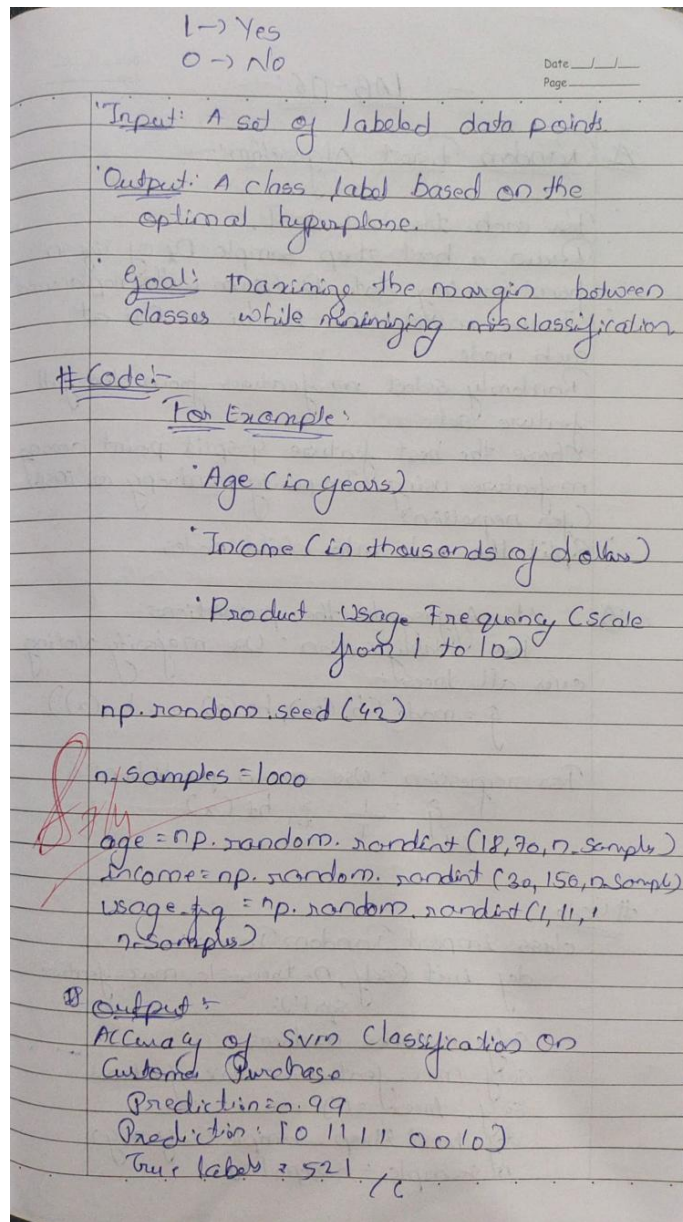 1 -> Yes
0 -> No
Date __/__/__
Page
Input: A set of labeled data points.
Output: A class label based on the
optimal hyperplane.
Goal: Maximize the margin between
classes while minimizing misclassification
# Code:-
For Example:
Age (in years)
Income (in thousands of dollars)
Product Usage Frequency (scale
from 1 to 10)
np.random.seed(42)
n_samples = 1000
age = np.random.randint(18,70, n_samples)
income = np.random.randint(30,150, n_sampl)
usage_fq = np.random.randint(1,11,
n_samples)
Output :-
Accuracy of SVM Classification on
Customer Purchase
Prediction = 0.99
Prediction: [0 1 1 1 1 0 0 1 0]
True labels = 521